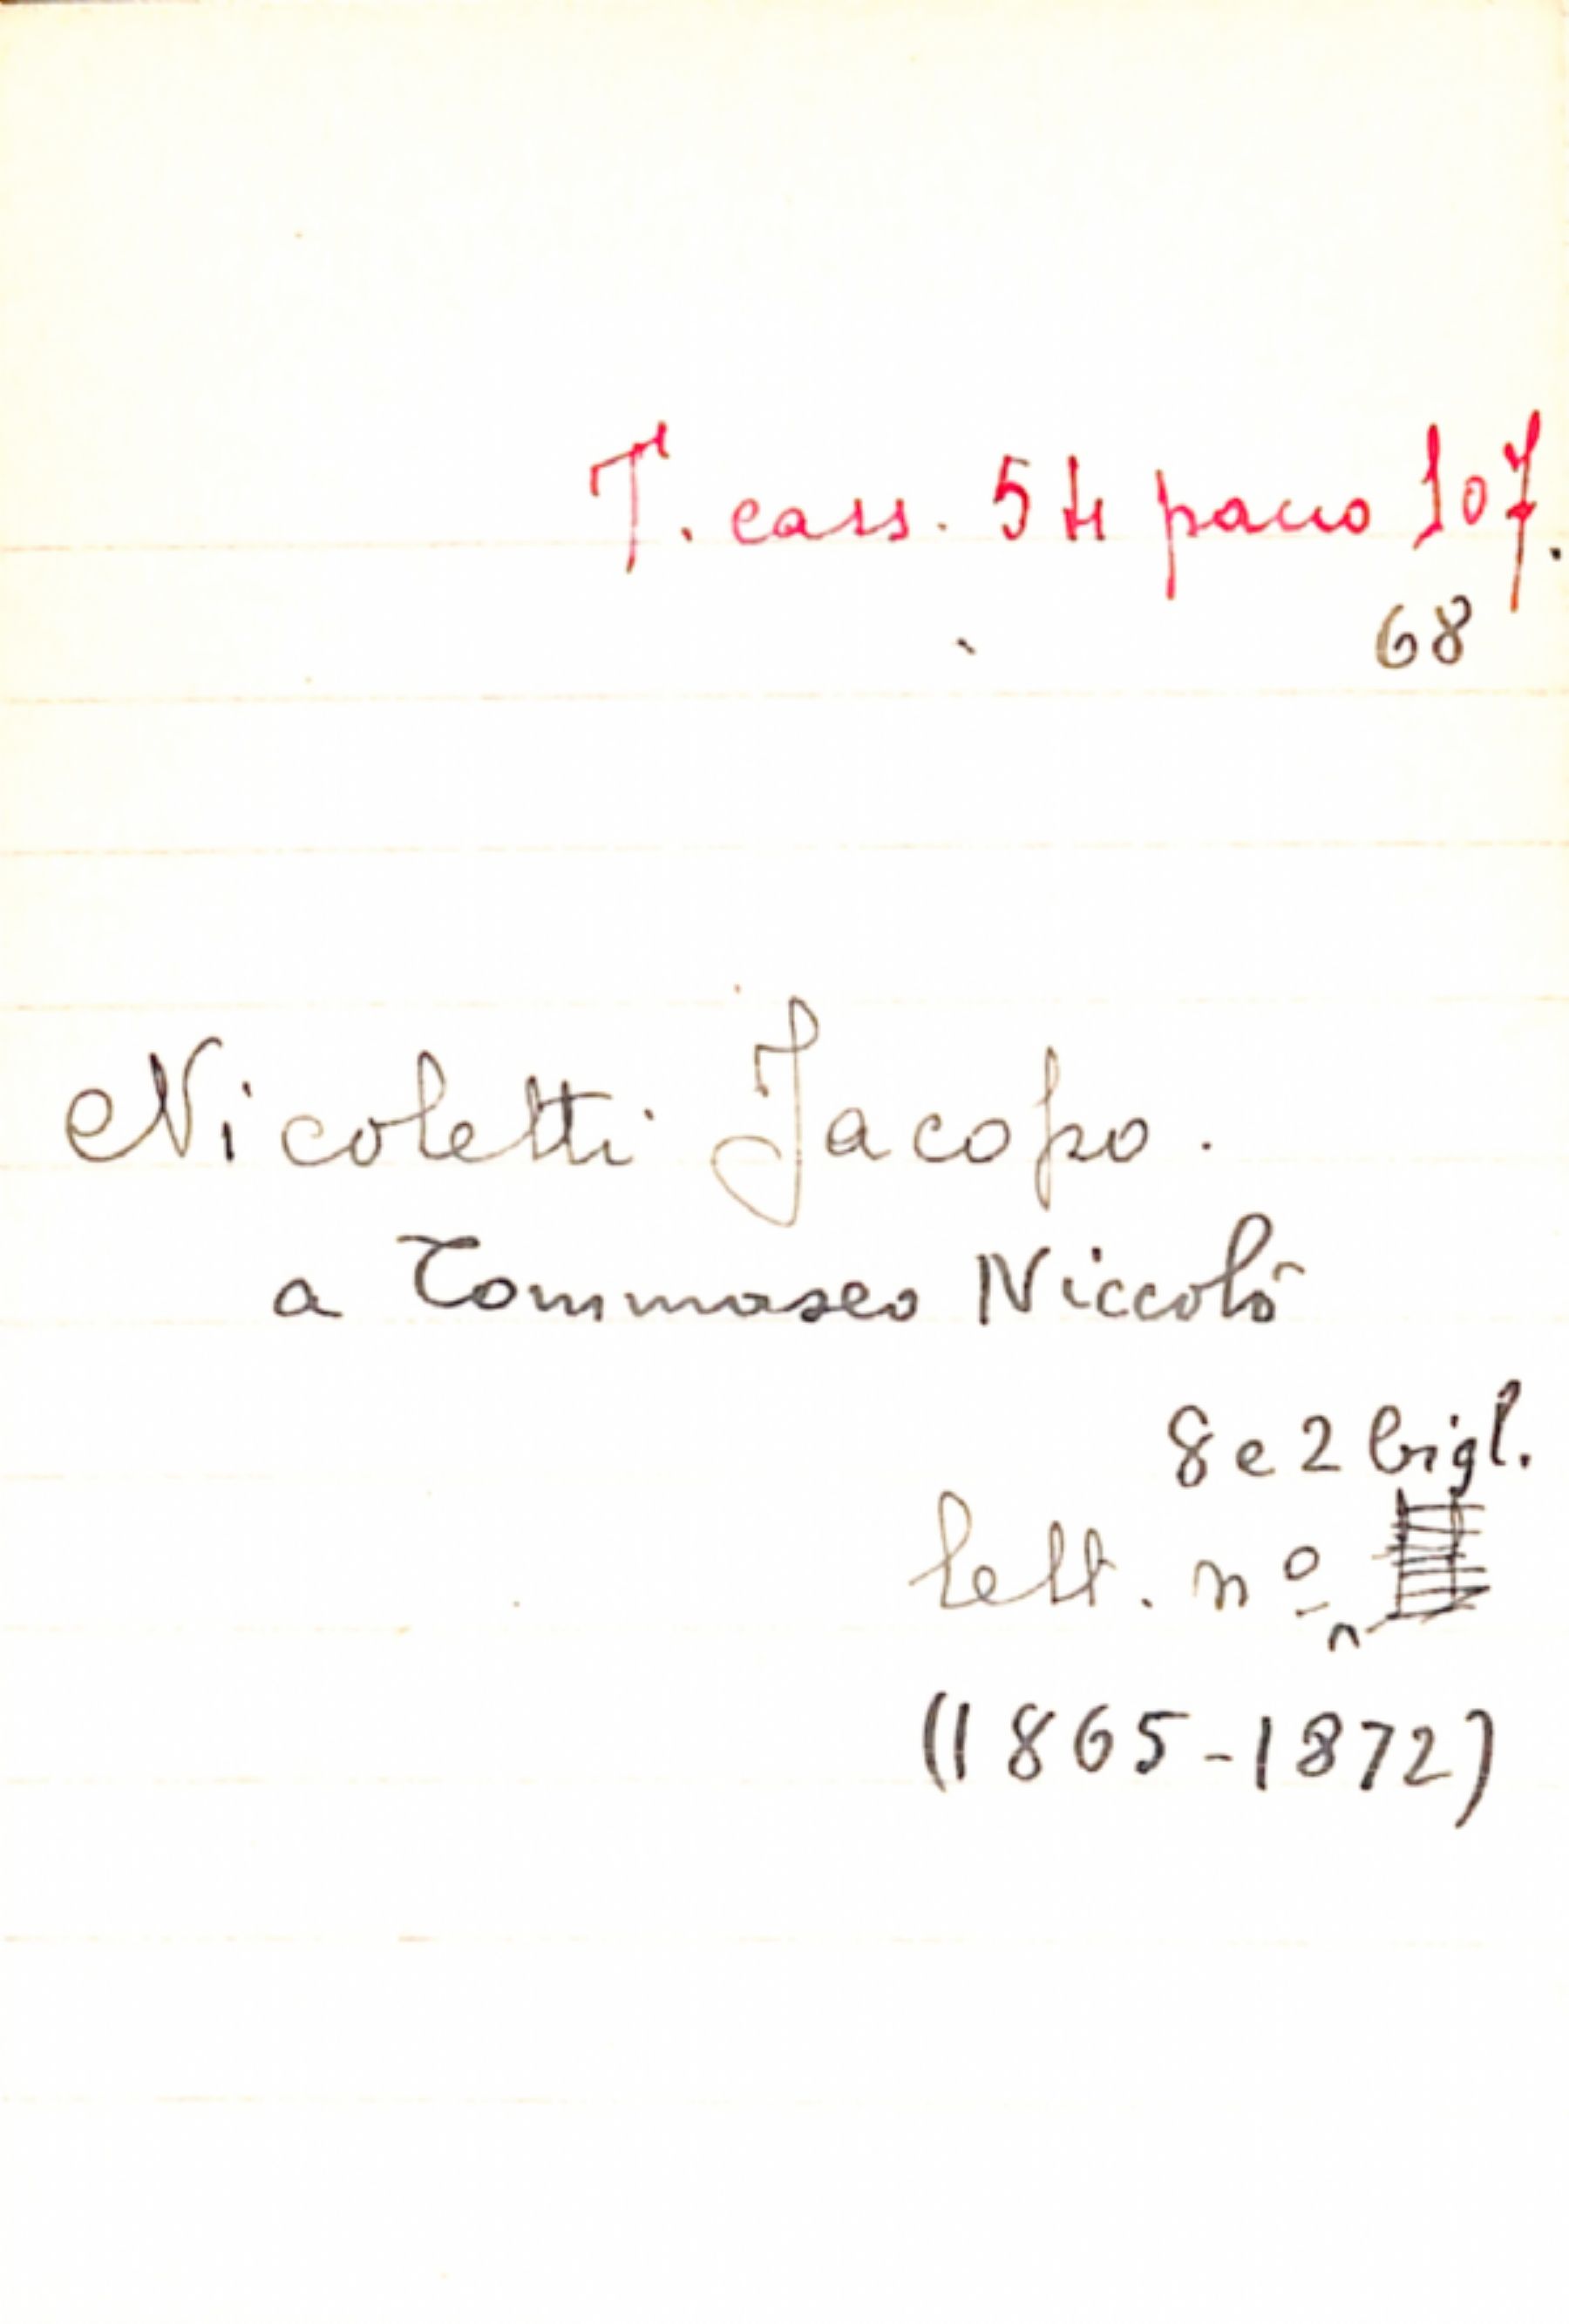 T. cass. 54 pacco 107.
68
Nicoletti Jacopo.
a Tommaseo Niccolò
8 e 2 bigl.
lett. nº
(1865-1872)